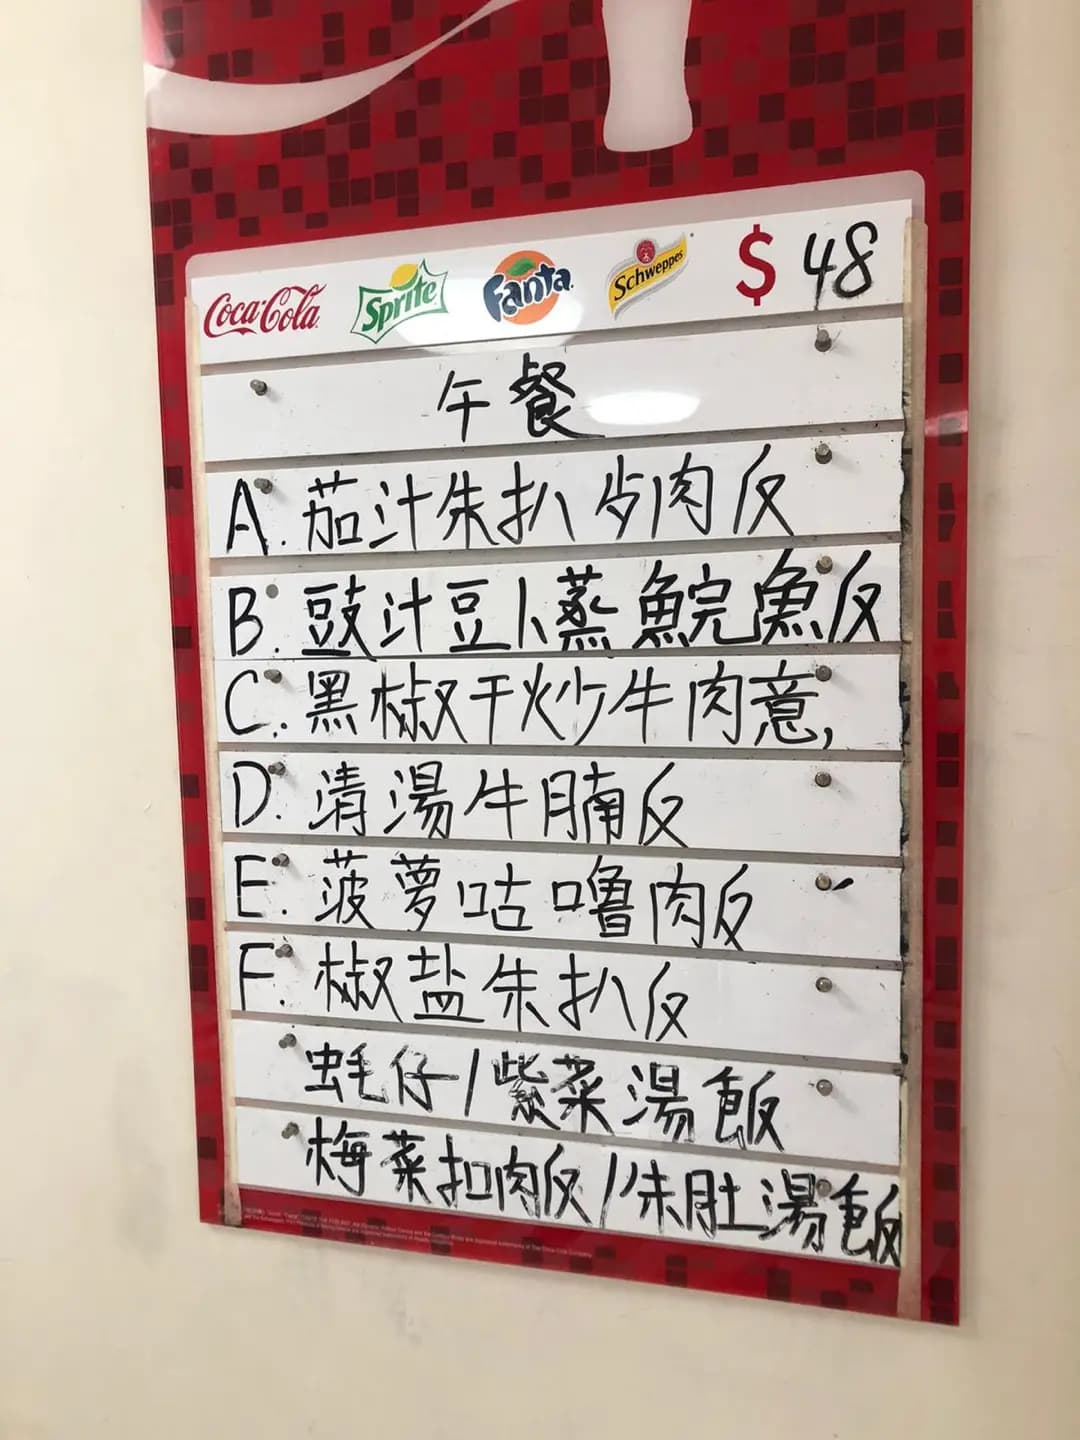 Coca-Cola Sprite Fanta Schweppes $ 48
午餐
A. 茄汁朱扒歺肉反
B. 豉汁豆卜蒸鯇魚反
C. 黑椒干炒牛肉意,
D. 清湯牛腩反
E. 菠萝咕噜肉反
F. 椒盐朱扒反
蚝仔/紫菜湯飯
梅菜扣肉反/朱肚湯飯